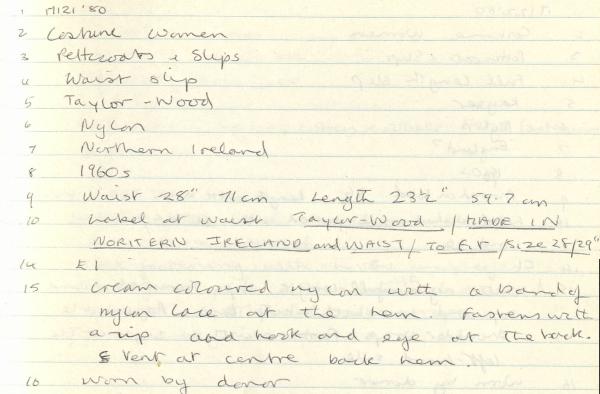 1 M121 '80
2 Costume Women
3 Petticoats & Slips
4 Waist slip
5 Taylor-Wood
6 Nylon
7 Northern Ireland
8 1960s
9 Waist 28" 71cm Length 23½" 59.7cm
10 Label at waist Taylor-Wood / MADE IN
NORTERN IRELAND and WAIST / TO FIT / SIZE 28/29"
14 E1
15 Cream coloured nylon with a band of
nylon lace at the hem. Fastens with
a zip and hook and eye at the back.
Vent at centre back hem.
16 Worn by donor